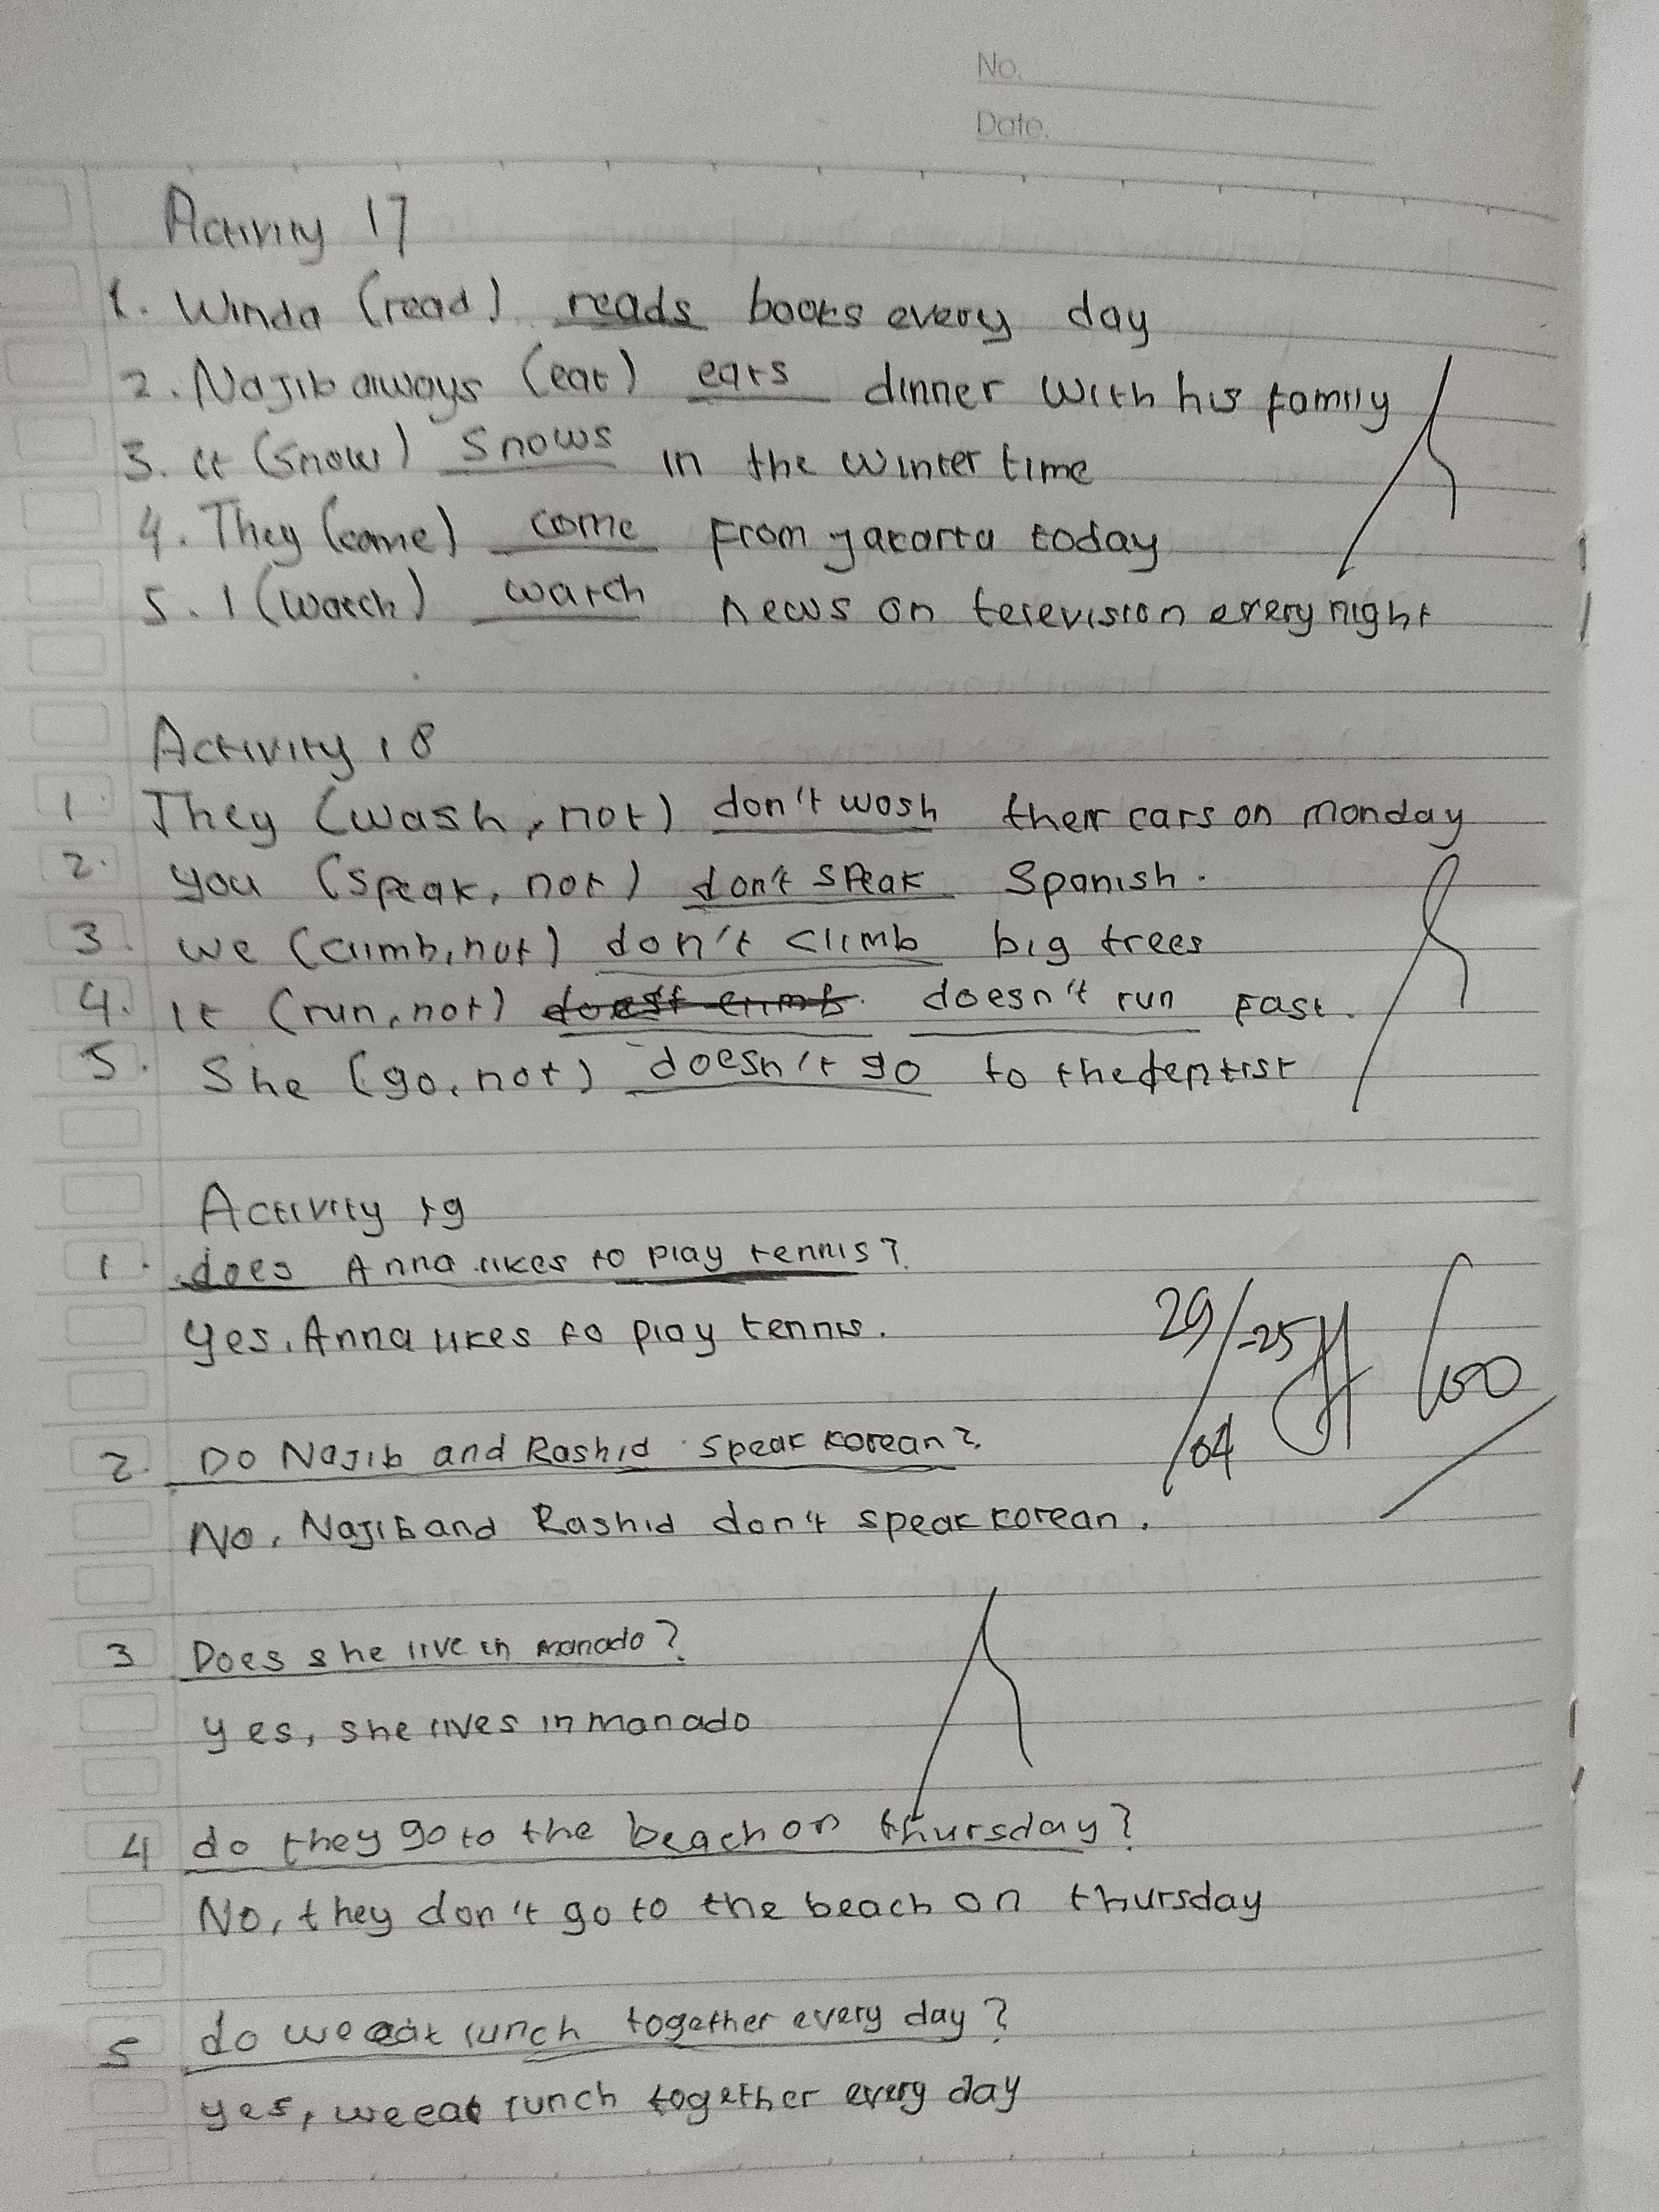 No.
Date.
Activity 17
1. Winda (read) reads books every day
2. Najib always (eat) eats dinner with his family
3. it (snow) snows in the winter time
4. They (come) come from jakarta today
5. I (watch) watch news on television every night
Activity 18
1. They (wash, not) don't wash their cars on monday
2. you (speak, not) don't speak Spanish.
3. we (climb, not) don't climb big trees
4. It (run, not) doesn't run fast.
5. She (go, not) doesn't go to the dentist
Activity 19
1. does Anna likes to play tennis?
Yes, Anna likes to play tennis.
29/04-25 100
2. Do Najib and Rashid speak korean?
No, Najib and Rashid don't speak korean.
3 Does she live in manado?
yes, she lives in manado
4 do they go to the beach on thursday?
No, they don't go to the beach on thursday
5 do we eat lunch together every day?
yes, we eat lunch together every day